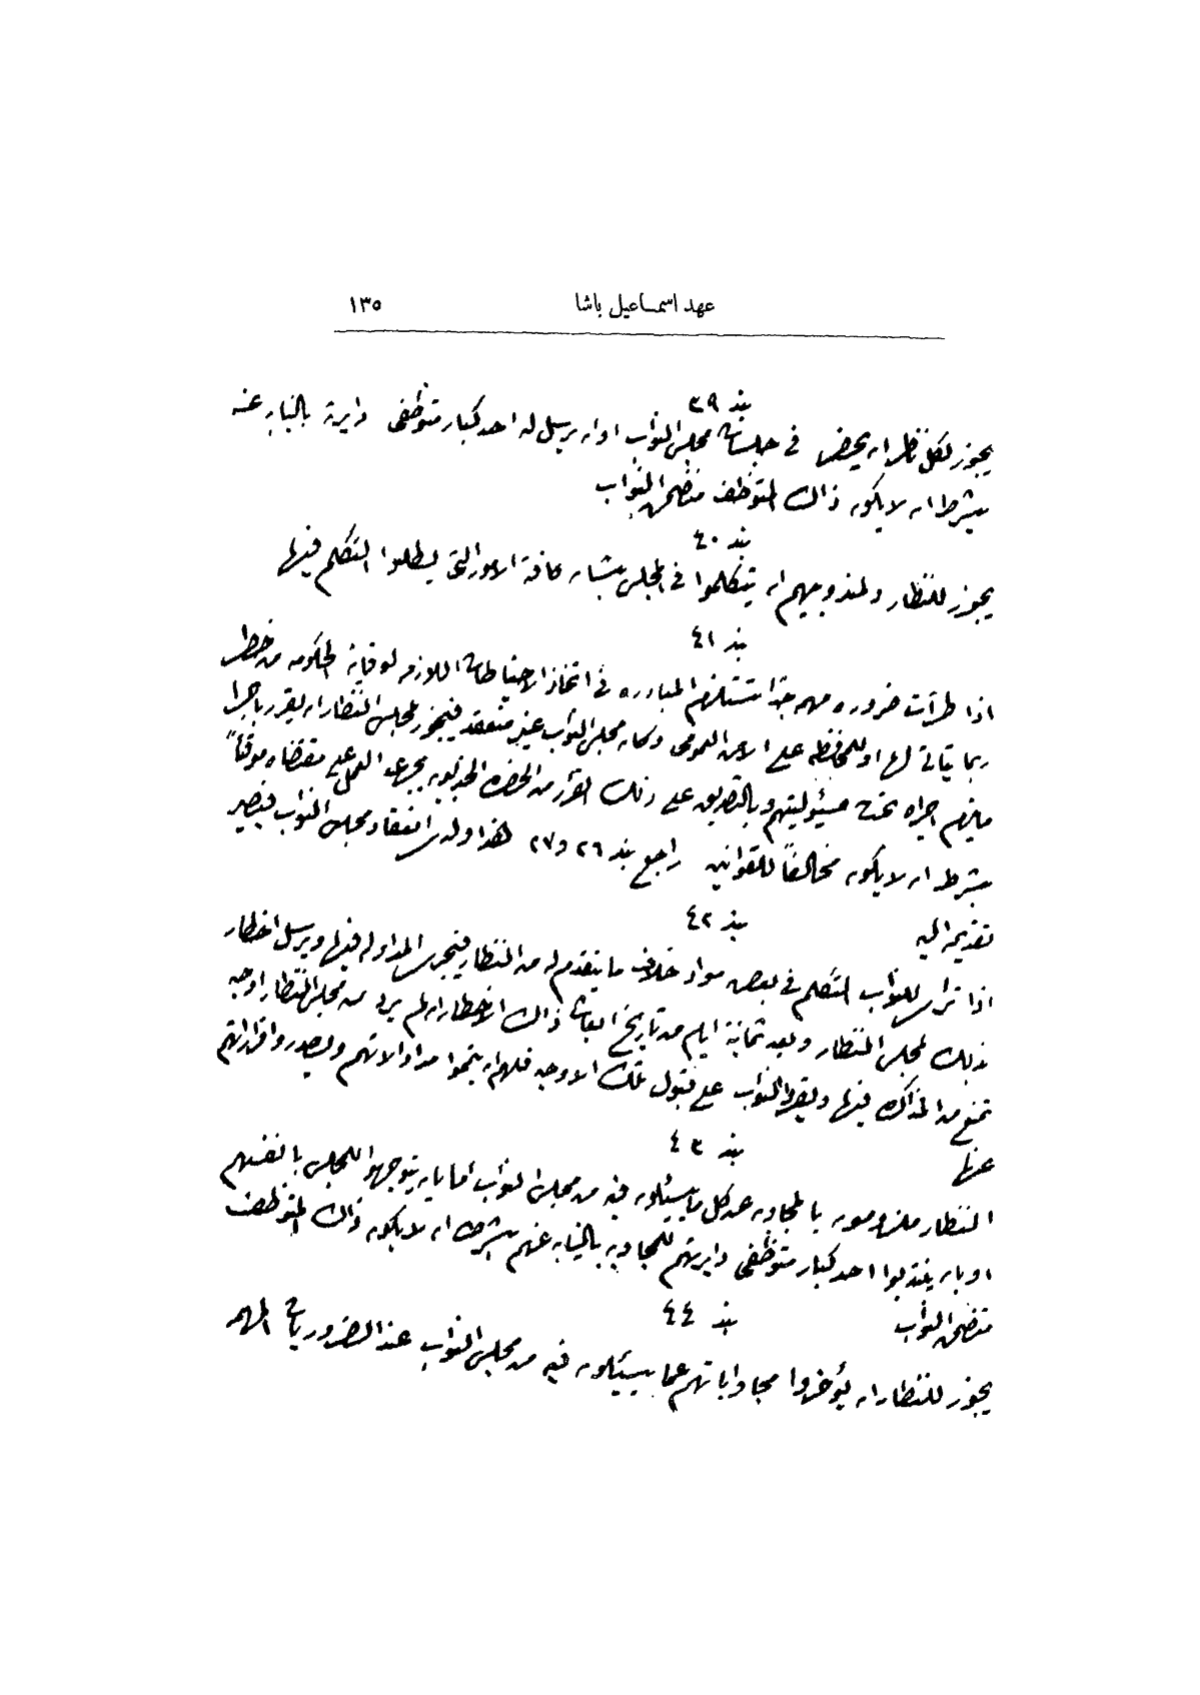 عهد اسمـاعيل باشا ١٣٥
بند ٣٩
يجوز لكل ناظر ان يحضر في جلسات مجلس النواب او ان يرسل له احد كبار متوظفى دايرته بالنيابه عنه
بشرط ان لا يكون ذالك المتوظف من ضمن النواب
بند ٤٠
يجوز للنظار ولمندوبيهم ان يتكلموا في المجلس بشان كافة الامور التى يطلبوا التكلم فيها
بند ٤١
اذا طرأت ضروره مهمه جدا تستلزم المبادره في اتخاذ الاحتياطات اللازمه لوقاية الحكومه من خطر
ربما يتاتى لها او للمحافظه على الامن العمومى وكان مجلس النواب غير منعقد فيجوز لمجلس النظار ان يقرر باجرا
ما يلزم اجراه تحت مسئوليتهم وبالتصديق على ذلك القرار من الحضره الخديويه يجرى العمل على مقتضاه موقتاً
بشرط ان لا يكون مخالفاً للقوانين راجع بند ٢٦ و٢٧ هذا ولدى انعقاد مجلس النواب فيصير
تقديمه اليه
بند ٤٢
اذا تراى للنواب التكلم في بعض مواد خلاف ما يتقدم له من النظار فيجرى المداوله فيها ويرسل اخطار
بذلك لمجلس النظار وبعد ثمانية ايام من تاريخ ابعاث ذالك الاخطار ان لم يرد من مجلس النظار اوجه
تمنع من المذاكره فيها ويقر النواب على قبول تلك الاوجه فلهم ان يتموا مداولاتهم ويصدروا قراراتهم
عنها
بند ٤٣
النظار ملزومون بالمجاوبه عن كل ما يسئلون فيه من مجلس النواب أما بان يتوجهوا للمجلس بانفسهم
او بان ينتدبوا احد كبار متوظفى دايرتهم للمجاوبه بالنيابه عنهم بشرط ان لا يكون ذالك المتوظف
من ضمن النواب
بند ٤٤
يجوز للنظار ان يؤخروا مجاوباتهم عما يسئلون فيه من مجلس النواب عند الضروريات المهمه